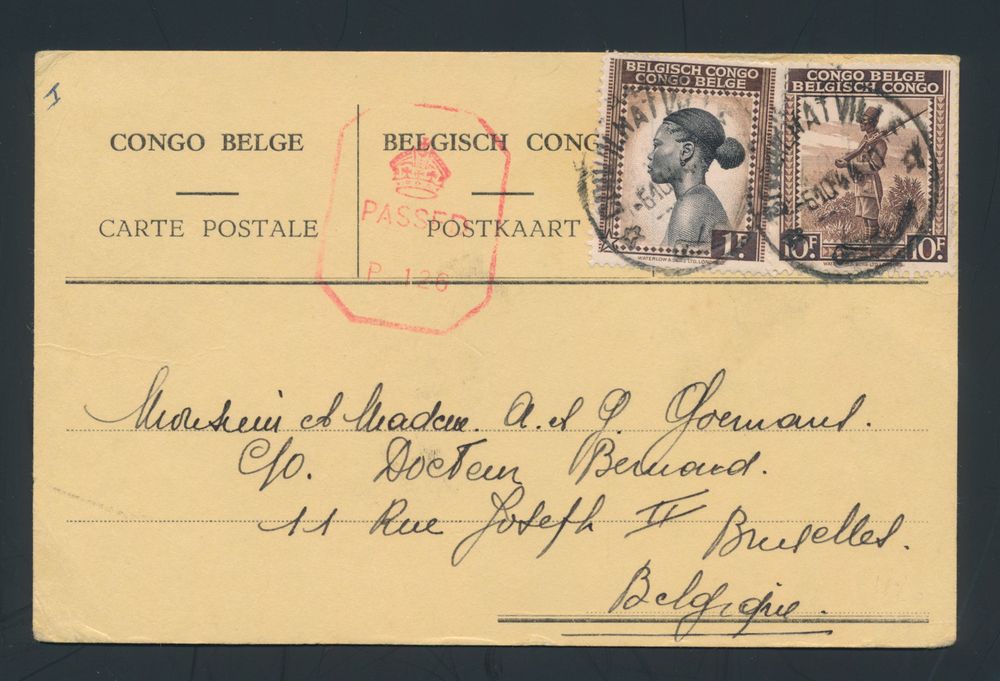 I
CONGO BELGE
CARTE POSTALE
BELGISCH CONG
POSTKAART
PASSED
P. 126
BELGISCH CONGO
CONGO BELGE
1F.
WATERLOW & SONS LTD. LOND
CONGO BELGE
BELGISCH CONGO
10F.
10F.
WATERLOW
Monsieur et Madame. A. et G. Goemans.
C/o. Docteur Bernard.
11 Rue Joseph II Bruxelles.
Belgique.